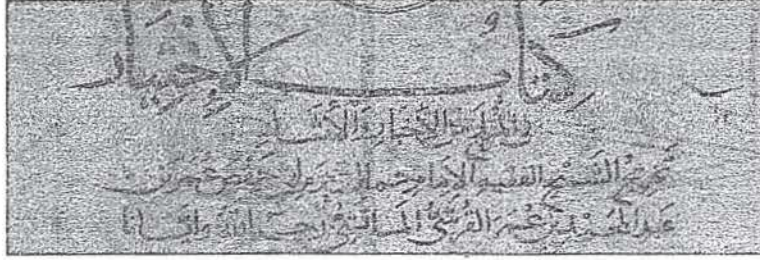 كتاب الاختيار
الأخبار والآثار
تخريج الشيخ الفقيه الامام جمال الدين أبي حفص عمر بن
عبد المجيد بن عمر القرشي الميانشي رحمه الله وايانا